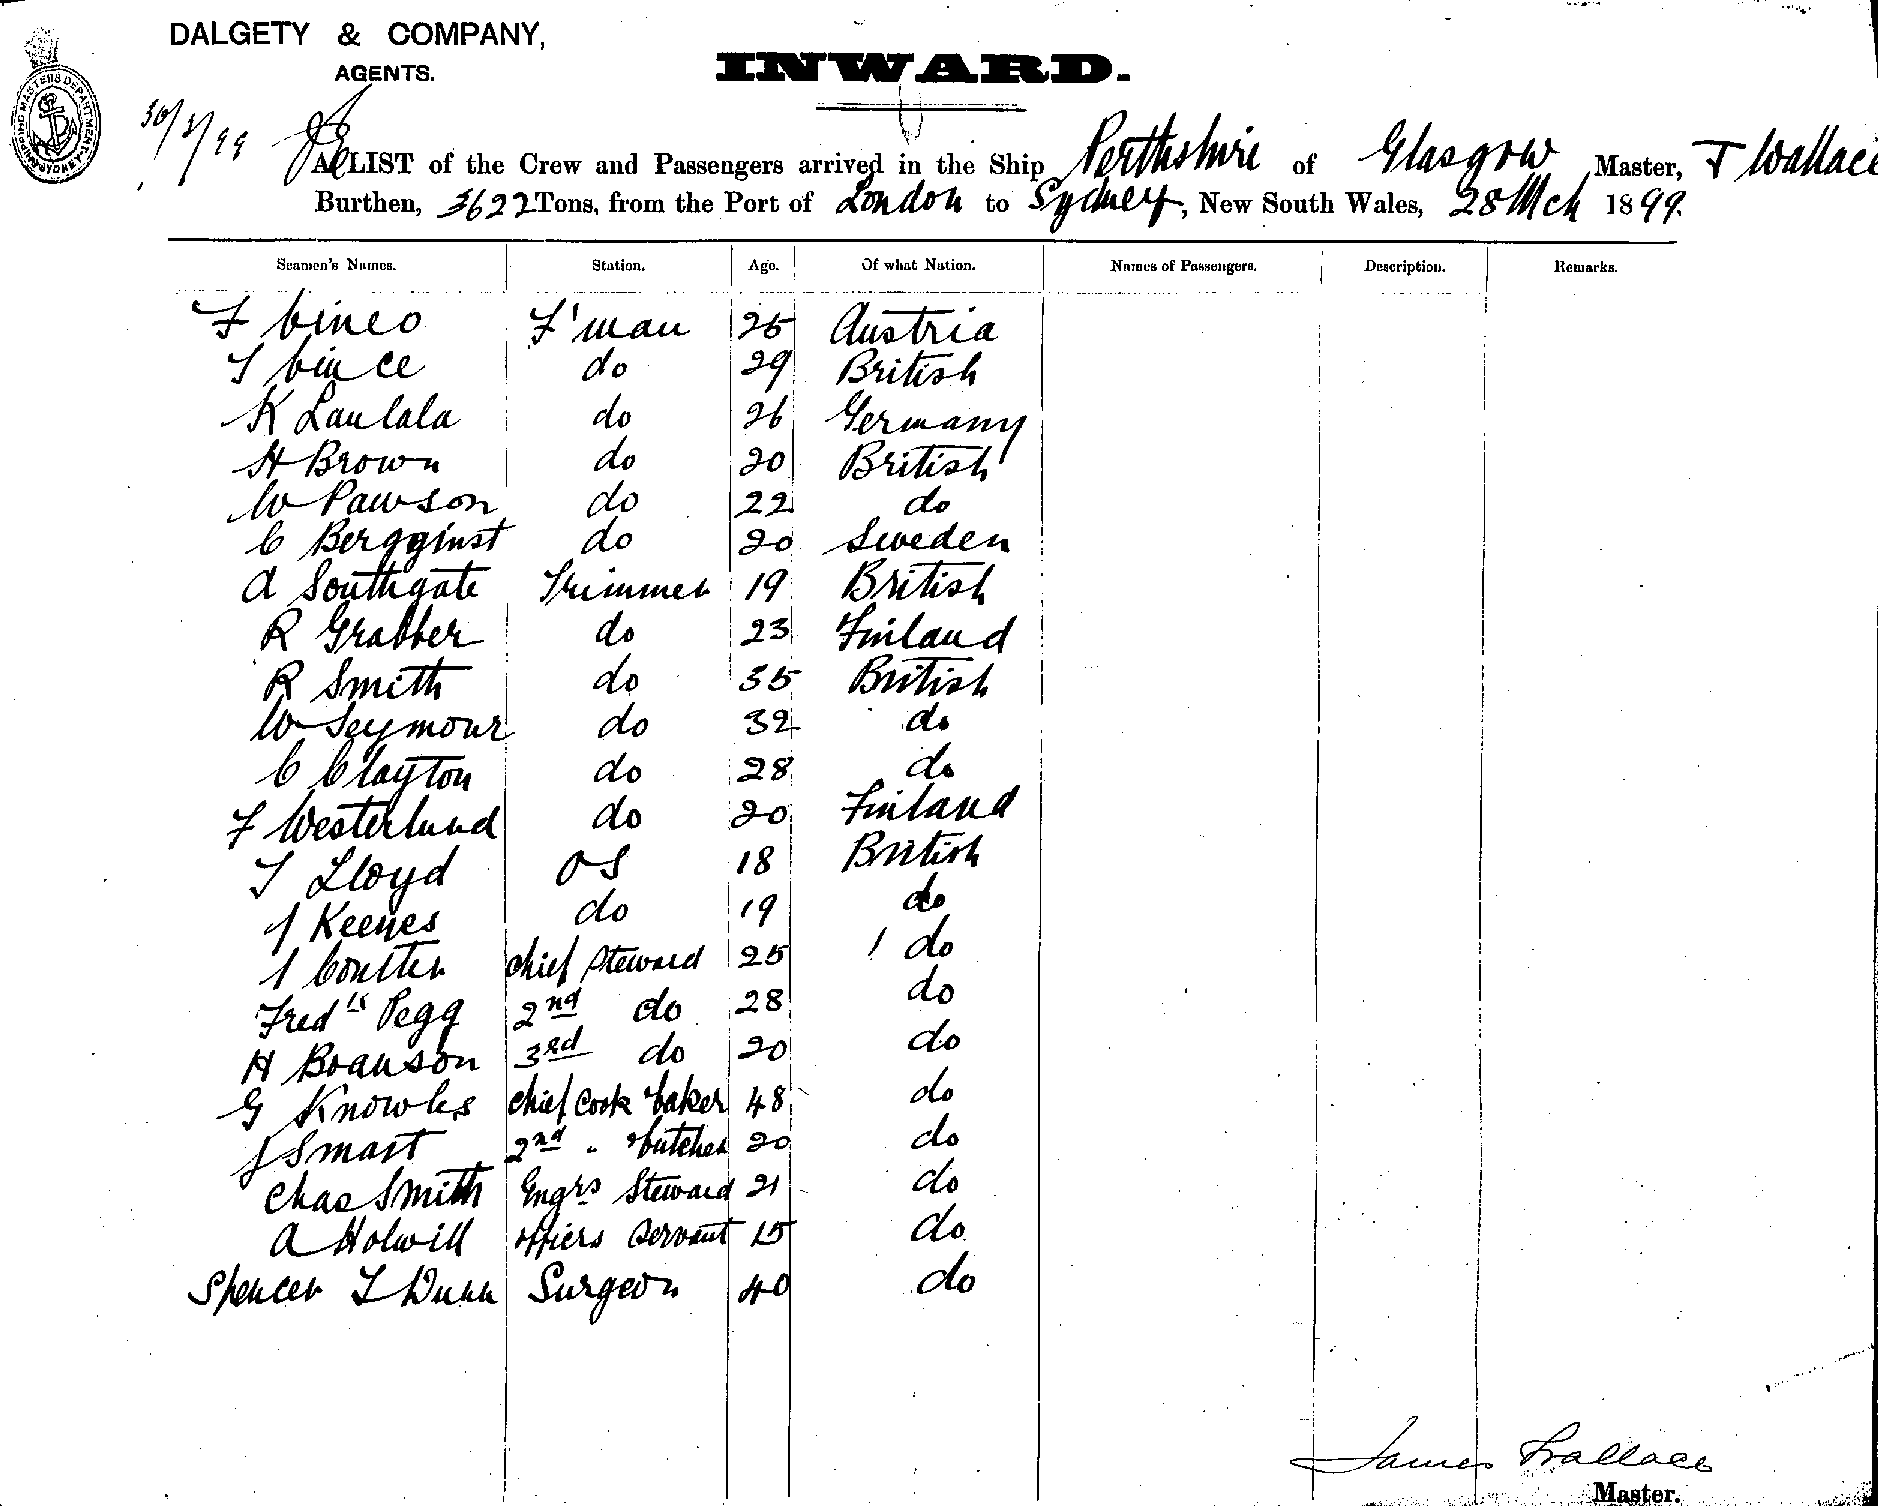 DALGETY & COMPANY,
AGENTS.
INWARD.
SHIPPING MASTERS DEPARTMENT SYDNEY
30/3/99
A LIST of the Crew and Passengers arrived in the Ship Perthshire of Glasgow Master, J Wallace
Burthen, 3622 Tons, from the Port of London to Sydney, New South Wales, 28 Mch 1899.
Seamen's Names. Station. Age. Of what Nation. Names of Passengers. Description. Remarks.
F Cinco F'man 25 Austria
T Cince do 29 British
K Laulala do 26 Germany
H Brown do 20 British
W Pawson do 22 do
C Bergginst do 20 Sweden
A Southgate Trimmer 19 British
R Grabber do 23 Finland
R Smith do 35 British
W Seymour do 32 do
C Clayton do 28 do
F Westerlund do 20 Finland
T Lloyd OS 18 British
J Keenes do 19 do
J Coulter Chief Steward 25 do
Fredk Pegg 2nd do 28 do
H Branson 3rd do 20 do
G Knowles Chief Cook & baker 48 do
J Smart 2nd " & butcher 20 do
Chas Smith Engrs Steward 21 do
A Holwill offiers Servant 15 do
Spencer T Dunn Surgeon 40 do
James Wallace
Master.